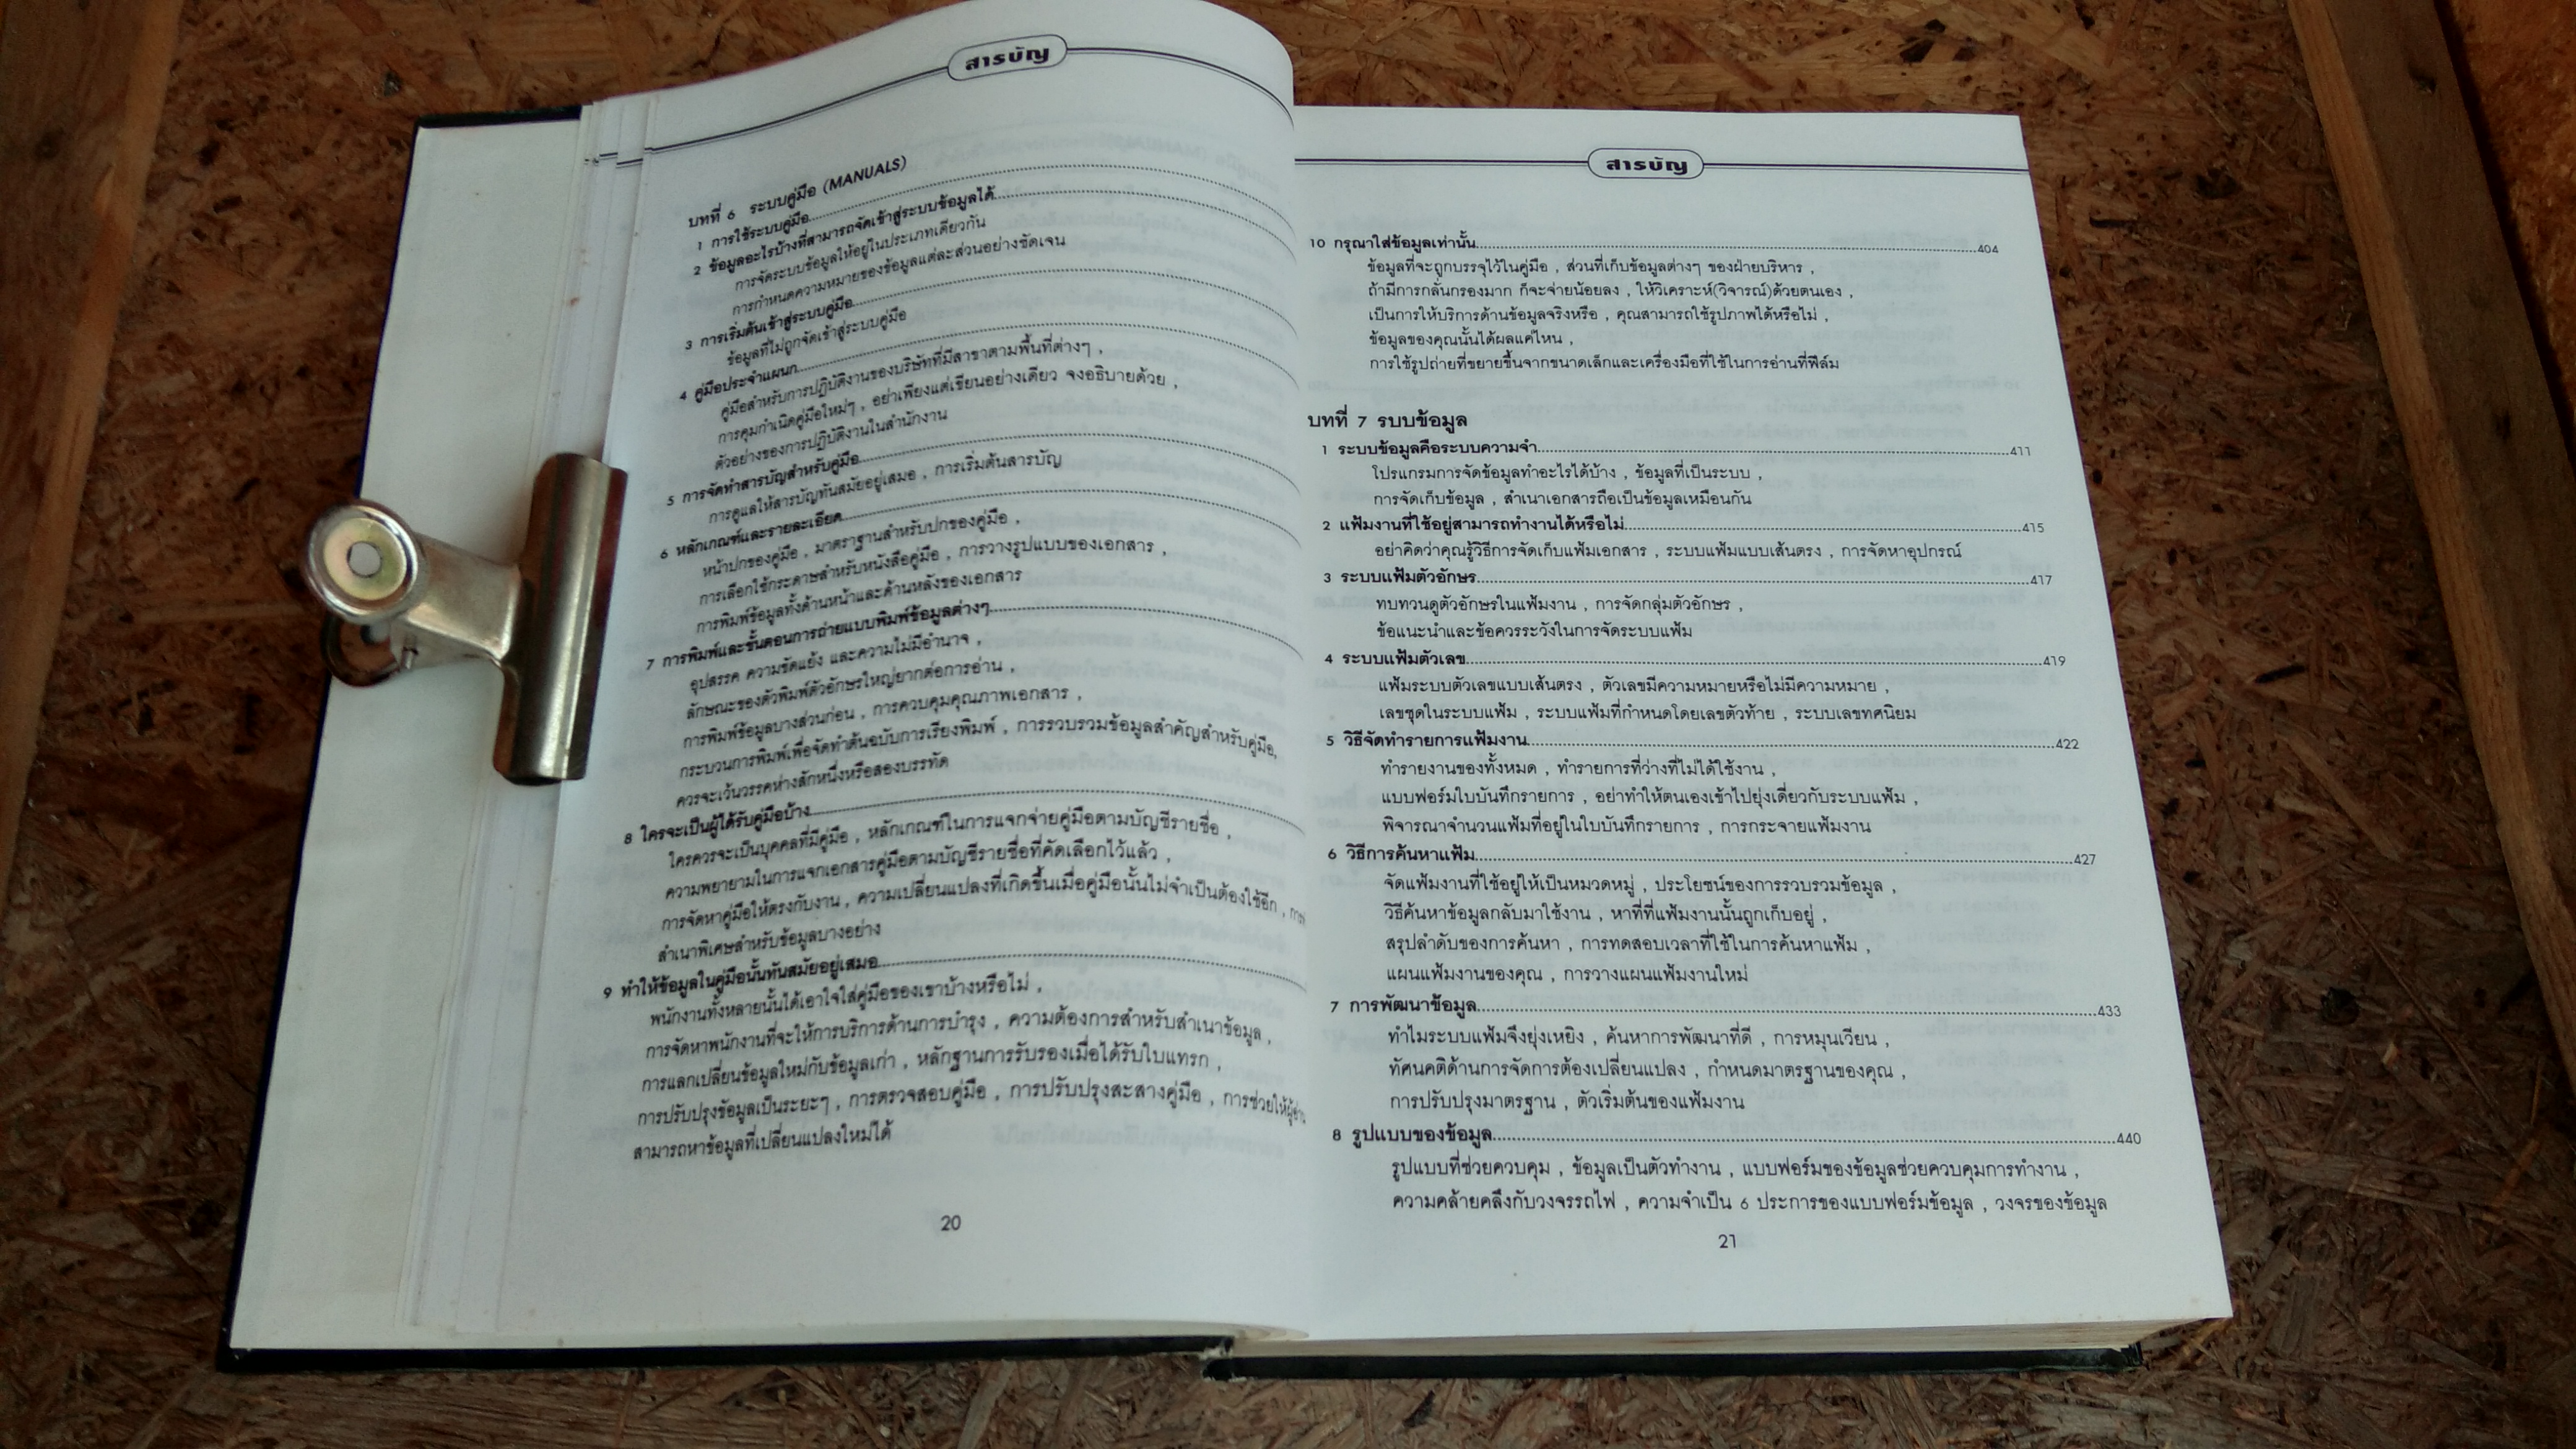 สารบัญ
บทที่ 6 ระบบคู่มือ (MANUALS)
1 การใช้ระบบคู่มือ
2 ข้อมูลอะไรบ้างที่สามารถจัดเข้าสู่ระบบข้อมูลได้
การจัดระบบข้อมูลให้อยู่ในประเภทเดียวกัน
การกำหนดความหมายของข้อมูลแต่ละส่วนอย่างชัดเจน
3 การเริ่มต้นเข้าสู่ระบบคู่มือ
ข้อมูลที่ไม่ถูกจัดเข้าสู่ระบบคู่มือ
4 คู่มือประจำแผนก
คู่มือสำหรับการปฏิบัติงานของบริษัทที่มีสาขาตามพื้นที่ต่างๆ ,
การคุมกำเนิดคู่มือใหม่ๆ , อย่าเพียงแต่เขียนอย่างเดียว จงอธิบายด้วย ,
ตัวอย่างของการปฏิบัติงานในสำนักงาน
5 การจัดทำสารบัญสำหรับคู่มือ
การดูแลให้สารบัญทันสมัยอยู่เสมอ , การเริ่มต้นสารบัญ
6 หลักเกณฑ์และรายละเอียด
หน้าปกของคู่มือ , มาตราฐานสำหรับปกของคู่มือ ,
การเลือกใช้กระดาษสำหรับหนังสือคู่มือ , การวางรูปแบบของเอกสาร ,
การพิมพ์ข้อมูลทั้งด้านหน้าและด้านหลังของเอกสาร
7 การพิมพ์และขั้นตอนการถ่ายแบบพิมพ์ข้อมูลต่างๆ
อุปสรรค ความขัดแย้ง และความไม่มีอำนาจ ,
ลักษณะของตัวพิมพ์ตัวอักษรใหญ่ยากต่อการอ่าน ,
การพิมพ์ข้อมูลบางส่วนก่อน , การควบคุมคุณภาพเอกสาร ,
กระบวนการพิมพ์เพื่อจัดทำต้นฉบับการเรียงพิมพ์ , การรวบรวมข้อมูลสำคัญสำหรับคู่มือ,
ควรจะเว้นวรรคห่างสักหนึ่งหรือสองบรรทัด
8 ใครจะเป็นผู้ได้รับคู่มือบ้าง
ใครควรจะเป็นบุคคลที่มีคู่มือ , หลักเกณฑ์ในการแจกจ่ายคู่มือตามบัญชีรายชื่อ ,
ความพยายามในการแจกเอกสารคู่มือตามบัญชีรายชื่อที่คัดเลือกไว้แล้ว ,
การจัดหาคู่มือให้ตรงกับงาน , ความเปลี่ยนแปลงที่เกิดขึ้นเมื่อคู่มือนั้นไม่จำเป็นต้องใช้อีก ,
สำเนาพิเศษสำหรับข้อมูลบางอย่าง
9 ทำให้ข้อมูลในคู่มือนั้นทันสมัยอยู่เสมอ
พนักงานทั้งหลายนั้นได้เอาใจใส่คู่มือของเขาบ้างหรือไม่ ,
การจัดหาพนักงานที่จะให้การบริการด้านการบำรุง , ความต้องการสำหรับสำเนาข้อมูล ,
การแลกเปลี่ยนข้อมูลใหม่กับข้อมูลเก่า , หลักฐานการรับรองเมื่อได้รับใบแทรก ,
การปรับปรุงข้อมูลเป็นระยะๆ , การตรวจสอบคู่มือ , การปรับปรุงสะสางคู่มือ , การช่วยให้ผู้อ่าน
สามารถหาข้อมูลที่เปลี่ยนแปลงใหม่ได้
20
สารบัญ
10 กรุณาใส่ข้อมูลเท่านั้น....404
ข้อมูลที่จะถูกบรรจุไว้ในคู่มือ , ส่วนที่เก็บข้อมูลต่างๆ ของฝ่ายบริหาร ,
ถ้ามีการกลั่นกรองมาก ก็จะจ่ายน้อยลง , ให้วิเคราะห์(วิจารณ์)ด้วยตนเอง ,
เป็นการให้บริการด้านข้อมูลจริงหรือ , คุณสามารถใช้รูปภาพได้หรือไม่ ,
ข้อมูลของคุณนั้นได้ผลแค่ไหน ,
การใช้รูปถ่ายที่ขยายขึ้นจากขนาดเล็กและเครื่องมือที่ใช้ในการอ่านที่ฟิล์ม
บทที่ 7 รบบข้อมูล
1 ระบบข้อมูลคือระบบความจำ....411
โปรแกรมการจัดข้อมูลทำอะไรได้บ้าง , ข้อมูลที่เป็นระบบ ,
การจัดเก็บข้อมูล , สำเนาเอกสารถือเป็นข้อมูลเหมือนกัน
2 แฟ้มงานที่ใช้อยู่สามารถทำงานได้หรือไม่....415
อย่าคิดว่าคุณรู้วิธีการจัดเก็บแฟ้มเอกสาร , ระบบแฟ้มแบบเส้นตรง , การจัดหาอุปกรณ์
3 ระบบแฟ้มตัวอักษร....417
ทบทวนดูตัวอักษรในแฟ้มงาน , การจัดกลุ่มตัวอักษร ,
ข้อแนะนำและข้อควรระวังในการจัดระบบแฟ้ม
4 ระบบแฟ้มตัวเลข....419
แฟ้มระบบตัวเลขแบบเส้นตรง , ตัวเลขมีความหมายหรือไม่มีความหมาย ,
เลขชุดในระบบแฟ้ม , ระบบแฟ้มที่กำหนดโดยเลขตัวท้าย , ระบบเลขทศนิยม
5 วิธีจัดทำรายการแฟ้มงาน....422
ทำรายงานของทั้งหมด , ทำรายการที่ว่างที่ไม่ได้ใช้งาน ,
แบบฟอร์มใบบันทึกรายการ , อย่าทำให้ตนเองเข้าไปยุ่งเดี่ยวกับระบบแฟ้ม ,
พิจารณาจำนวนแฟ้มที่อยู่ในใบบันทึกรายการ , การกระจายแฟ้มงาน
6 วิธีการค้นหาแฟ้ม....427
จัดแฟ้มงานที่ใช้อยู่ให้เป็นหมวดหมู่ , ประโยชน์ของการรวบรวมข้อมูล ,
วิธีค้นหาข้อมูลกลับมาใช้งาน , หาที่ที่แฟ้มงานนั้นถูกเก็บอยู่ ,
สรุปลำดับของการค้นหา , การทดสอบเวลาที่ใช้ในการค้นหาแฟ้ม ,
แผนแฟ้มงานของคุณ , การวางแผนแฟ้มงานใหม่
7 การพัฒนาข้อมูล....433
ทำไมระบบแฟ้มจึงยุ่งเหยิง , ค้นหาการพัฒนาที่ดี , การหมุนเวียน ,
ทัศนคติด้านการจัดการต้องเปลี่ยนแปลง , กำหนดมาตรฐานของคุณ ,
การปรับปรุงมาตรฐาน , ตัวเริ่มต้นของแฟ้มงาน
8 รูปแบบของข้อมูล....440
รูปแบบที่ช่วยควบคุม , ข้อมูลเป็นตัวทำงาน , แบบฟอร์มของข้อมูลช่วยควบคุมการทำงาน ,
ความคล้ายคลึงกับวงจรรถไฟ , ความจำเป็น 6 ประการของแบบฟอร์มข้อมูล , วงจรของข้อมูล
21